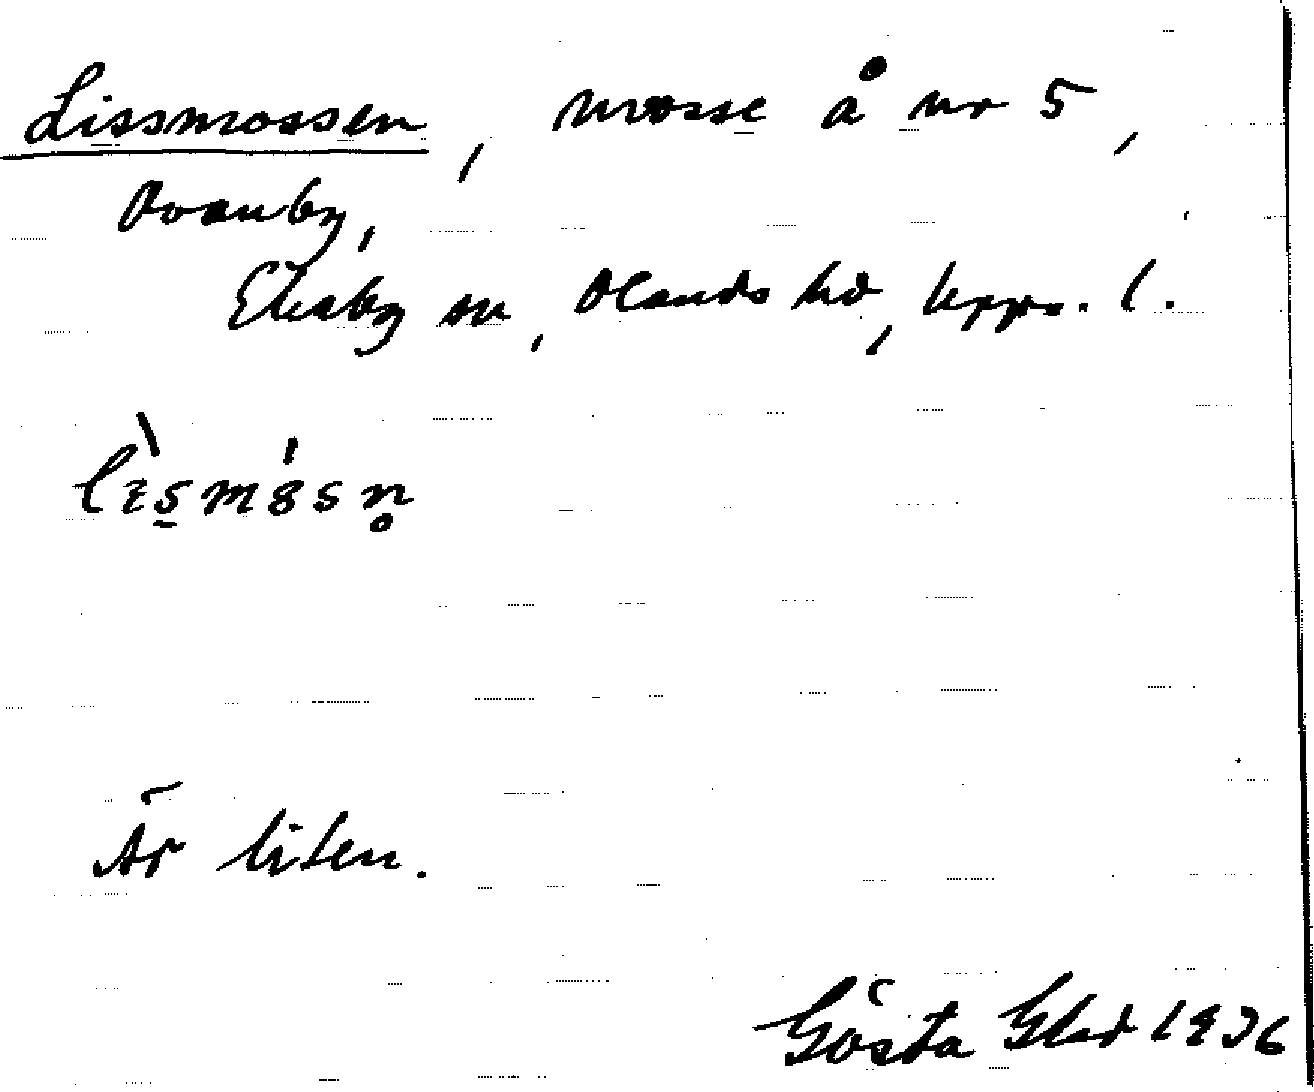 Lissmossen, mosse å nr 5,
Ovanby,
Ekeby sn, Olands hd, Upps. l.
Är liten.
Gösta Glad 1936